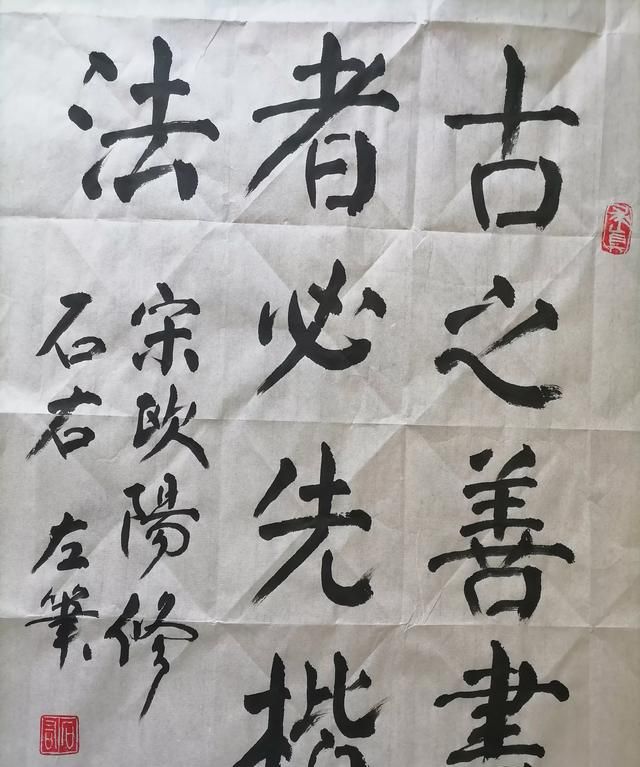 古之善書
者必先楷
法
宋欧陽修
石右 左筆